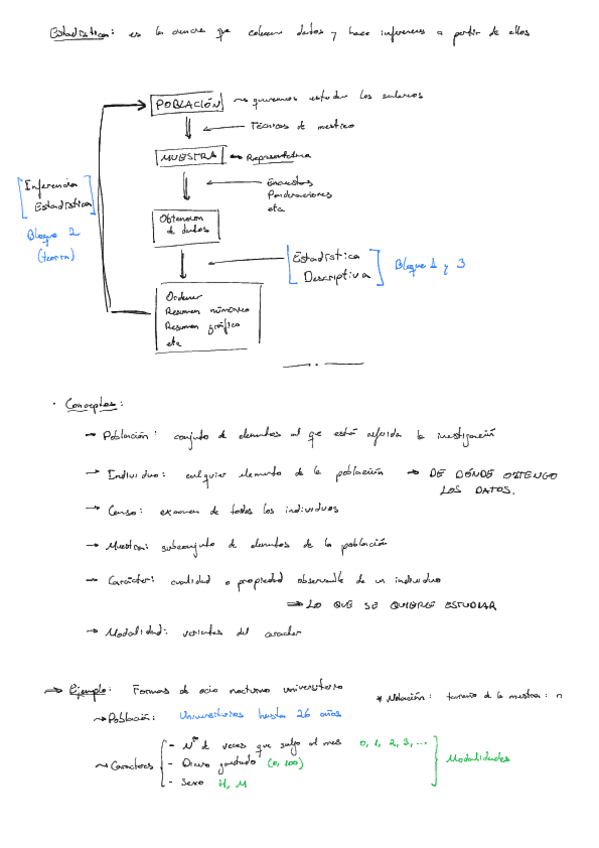 Estadística: es la ciencia que datos y hace inferencias a partir de ellos
POBLACIÓN → queremos estudiar los salarios
Técnicas de muestreo
MUESTRA ← Representativa
Encuestas
Ponderaciones
etc
Inferencia
Estadística
Bloque 2
(teoría)
Obtención
de datos
Estadística
Descriptiva
Bloque 1 y 3
Ordenar
Resumen numérico
Resumen gráfico
etc
· Conceptos:
→ Población: conjunto de elementos al que está referida la investigación
→ Individuo: cualquier elemento de la población → DE DÓNDE OBTENGO
LOS DATOS.
→ Censo: examen de todos los individuos
→ Muestra: subconjunto de elementos de la población
→ Carácter: cualidad o propiedad observable de un individuo
⇒ LO QUE SE QUIERE ESTUDIAR
→ Modalidad: variantes del caracter
⇒ Ejemplo: Formas de ocio nocturno universitario
* Notación: tamaño de la muestra: n
→ Población: Universitarios hasta 26 años
→ Caracteres
- Nº de veces que salgo al mes 0, 1, 2, 3, ...
- Dinero gastado (0, 100)
- Sexo H, M
Modalidades